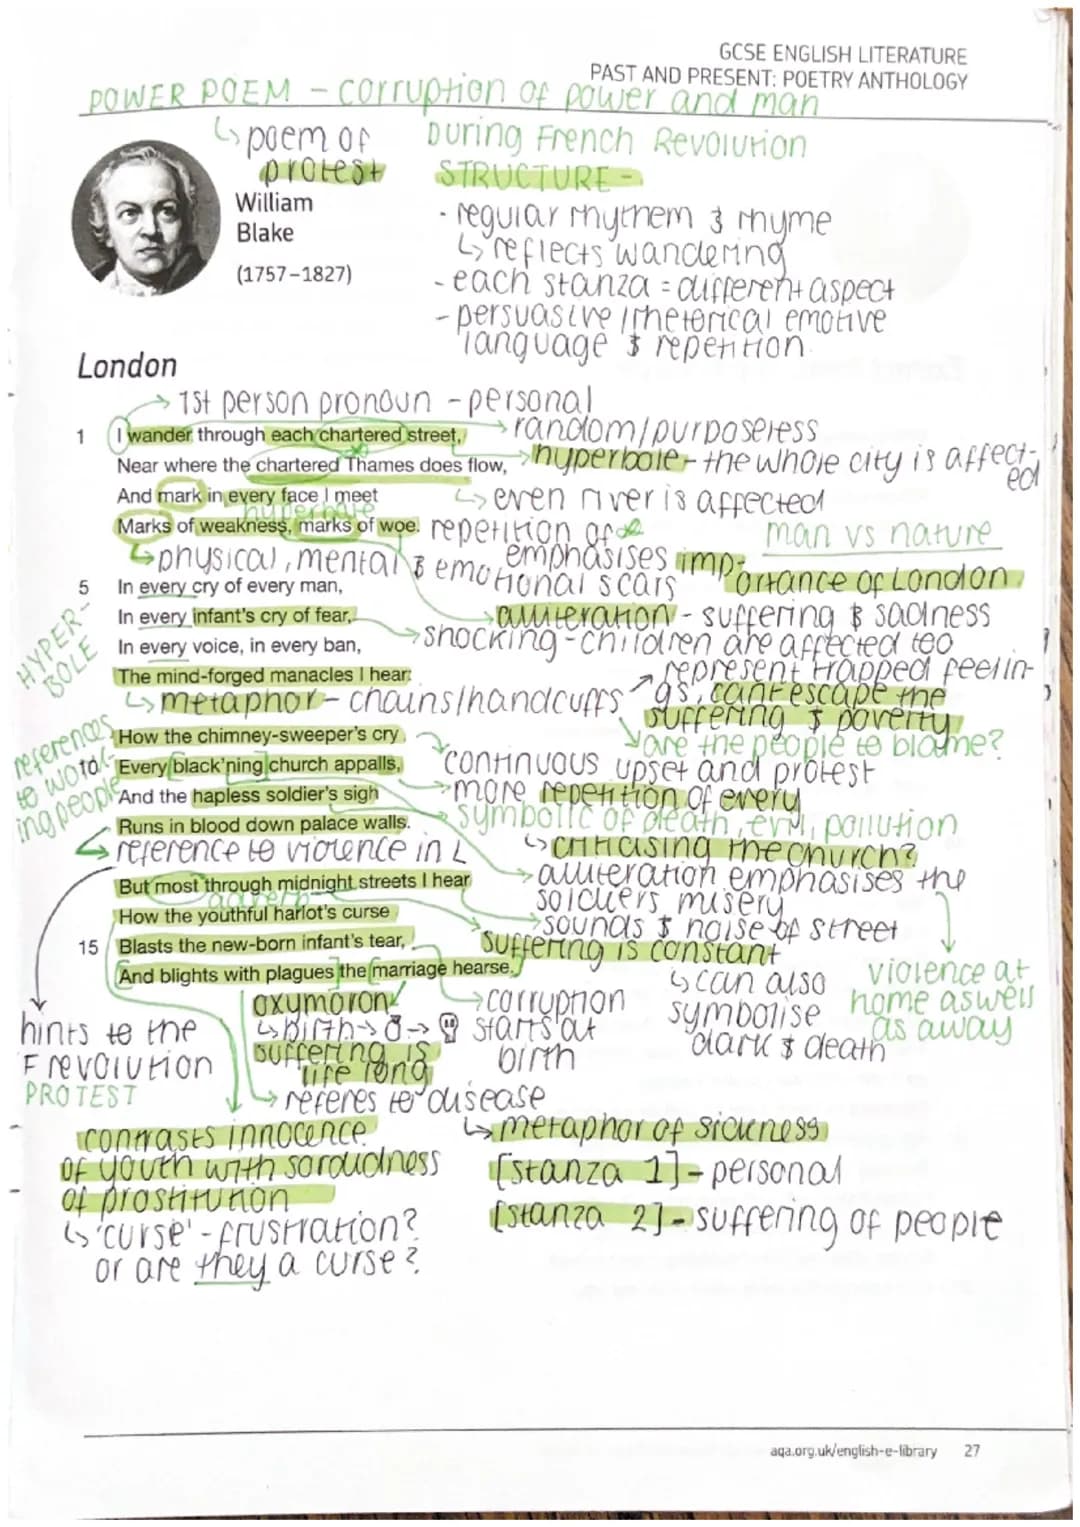 GCSE ENGLISH LITERATURE
PAST AND PRESENT: POETRY ANTHOLOGY
POWER POEM - corruption of power and man
↳ poem of protest
During French Revolution
STRUCTURE -
William
Blake
(1757–1827)
· regular rhythem & rhyme
↳ reflects wandering
- each stanza = different aspect
- persuasive / rhetorical emotive
language & repetition.
London
→ 1st person pronoun - personal
1 I wander through each chartered street,
→ random/purposeless
Near where the chartered Thames does flow,
→ hyperbole - the whole city is affect-
ed
And mark in every face I meet
↳ even river is affected
hyperbole
Marks of weakness, marks of woe.
repetition of
emphasises imp-
ortance of London
man vs nature
↳ physical, mental & emotional scars
5 In every cry of every man,
In every infant's cry of fear,
→ alliteration - suffering & sadness
In every voice, in every ban,
→ shocking - children are affected too
HYPER-
BOLE
The mind-forged manacles I hear:
↳ metaphor - chains/handcuffs
→ represent trapped feelin-
gs, cant escape the
suffering & poverty
↘ are the people to blame?
references
to work-
ing people
How the chimney-sweeper's cry
continuous upset and protest
10 Every black'ning church appalls,
→ more repetition of every
And the hapless soldier's sigh
symbolic of death, evil, pollution
Runs in blood down palace walls.
↳ criticising the church?
→ reference to violence in L
→ alliteration emphasises the
soldiers misery
But most through midnight streets I hear
How the youthful harlot's curse
→ sounds & noise of street
15 Blasts the new-born infant's tear,
suffering is constant
And blights with plagues the marriage hearse.
↳ can also
symbolise
dark & death
violence at
home aswell
as away
oxymoron
↳ birth → →
suffering is
life long
→ corruption
starts at
birth
hints to the
F revolution
PROTEST
↳ referes to disease
↳ metaphor of sickness
contrasts innocence
of youth with sordidness
of prostitution
↳ 'curse' - frustration?
or are they a curse?
[stanza 1] - personal
[stanza 2] - suffering of people
aqa.org.uk/english-e-library 27